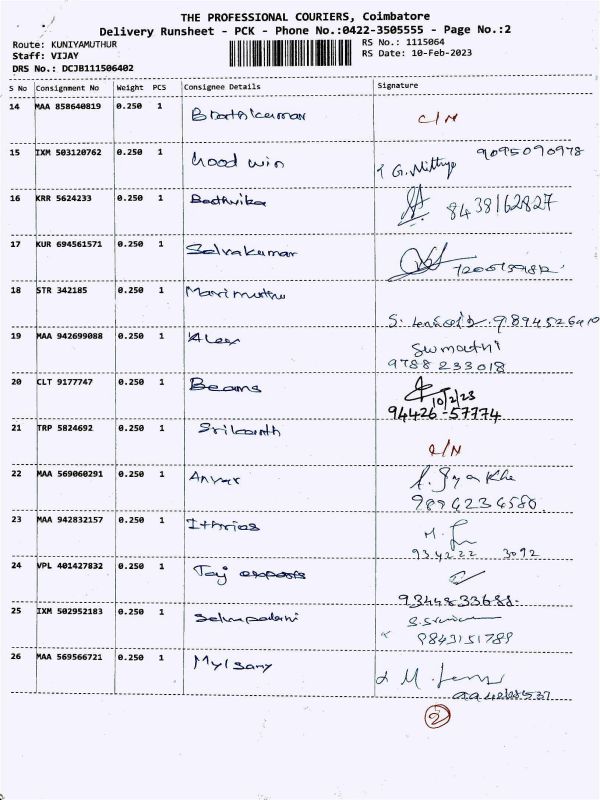 THE PROFESSIONAL COURIERS, Coimbatore
Delivery Runsheet - PCK - Phone No.:0422-3505555 - Page No.:2
Route: KUNIYAMUTHUR
RS No.: 1115064
Staff: VIJAY
RS Date: 10-Feb-2023
DRS No.: DCJB111506402
S No Consignment No Weight PCS Consignee Details Signature
14 MAA 858640819 0.250 1 Brathkumar C/N
15 IXM 503120762 0.250 1 Good win G. Nithya 9095090978
16 KRR 5624233 0.250 1 Badhvika 8438162827
17 KUR 694561571 0.250 1 Selvakumar
18 STR 342185 0.250 1 Marimuthu S. 9894526910
19 MAA 942699088 0.250 1 Alex Sumathi
9788233018
20 CLT 9177747 0.250 1 Beams 10/2/23
94426-57774
21 TRP 5824692 0.250 1 Srikanth C/N
22 MAA 569060291 0.250 1 Anvar
9894234580.
23 MAA 942832157 0.250 1 Ithrios
934222 3092
24 VPL 401427832 0.250 1 Taj exports
9344833688.
25 IXM 502952183 0.250 1 Selvapadani
9843151789
26 MAA 569566721 0.250 1 Mylsamy
2